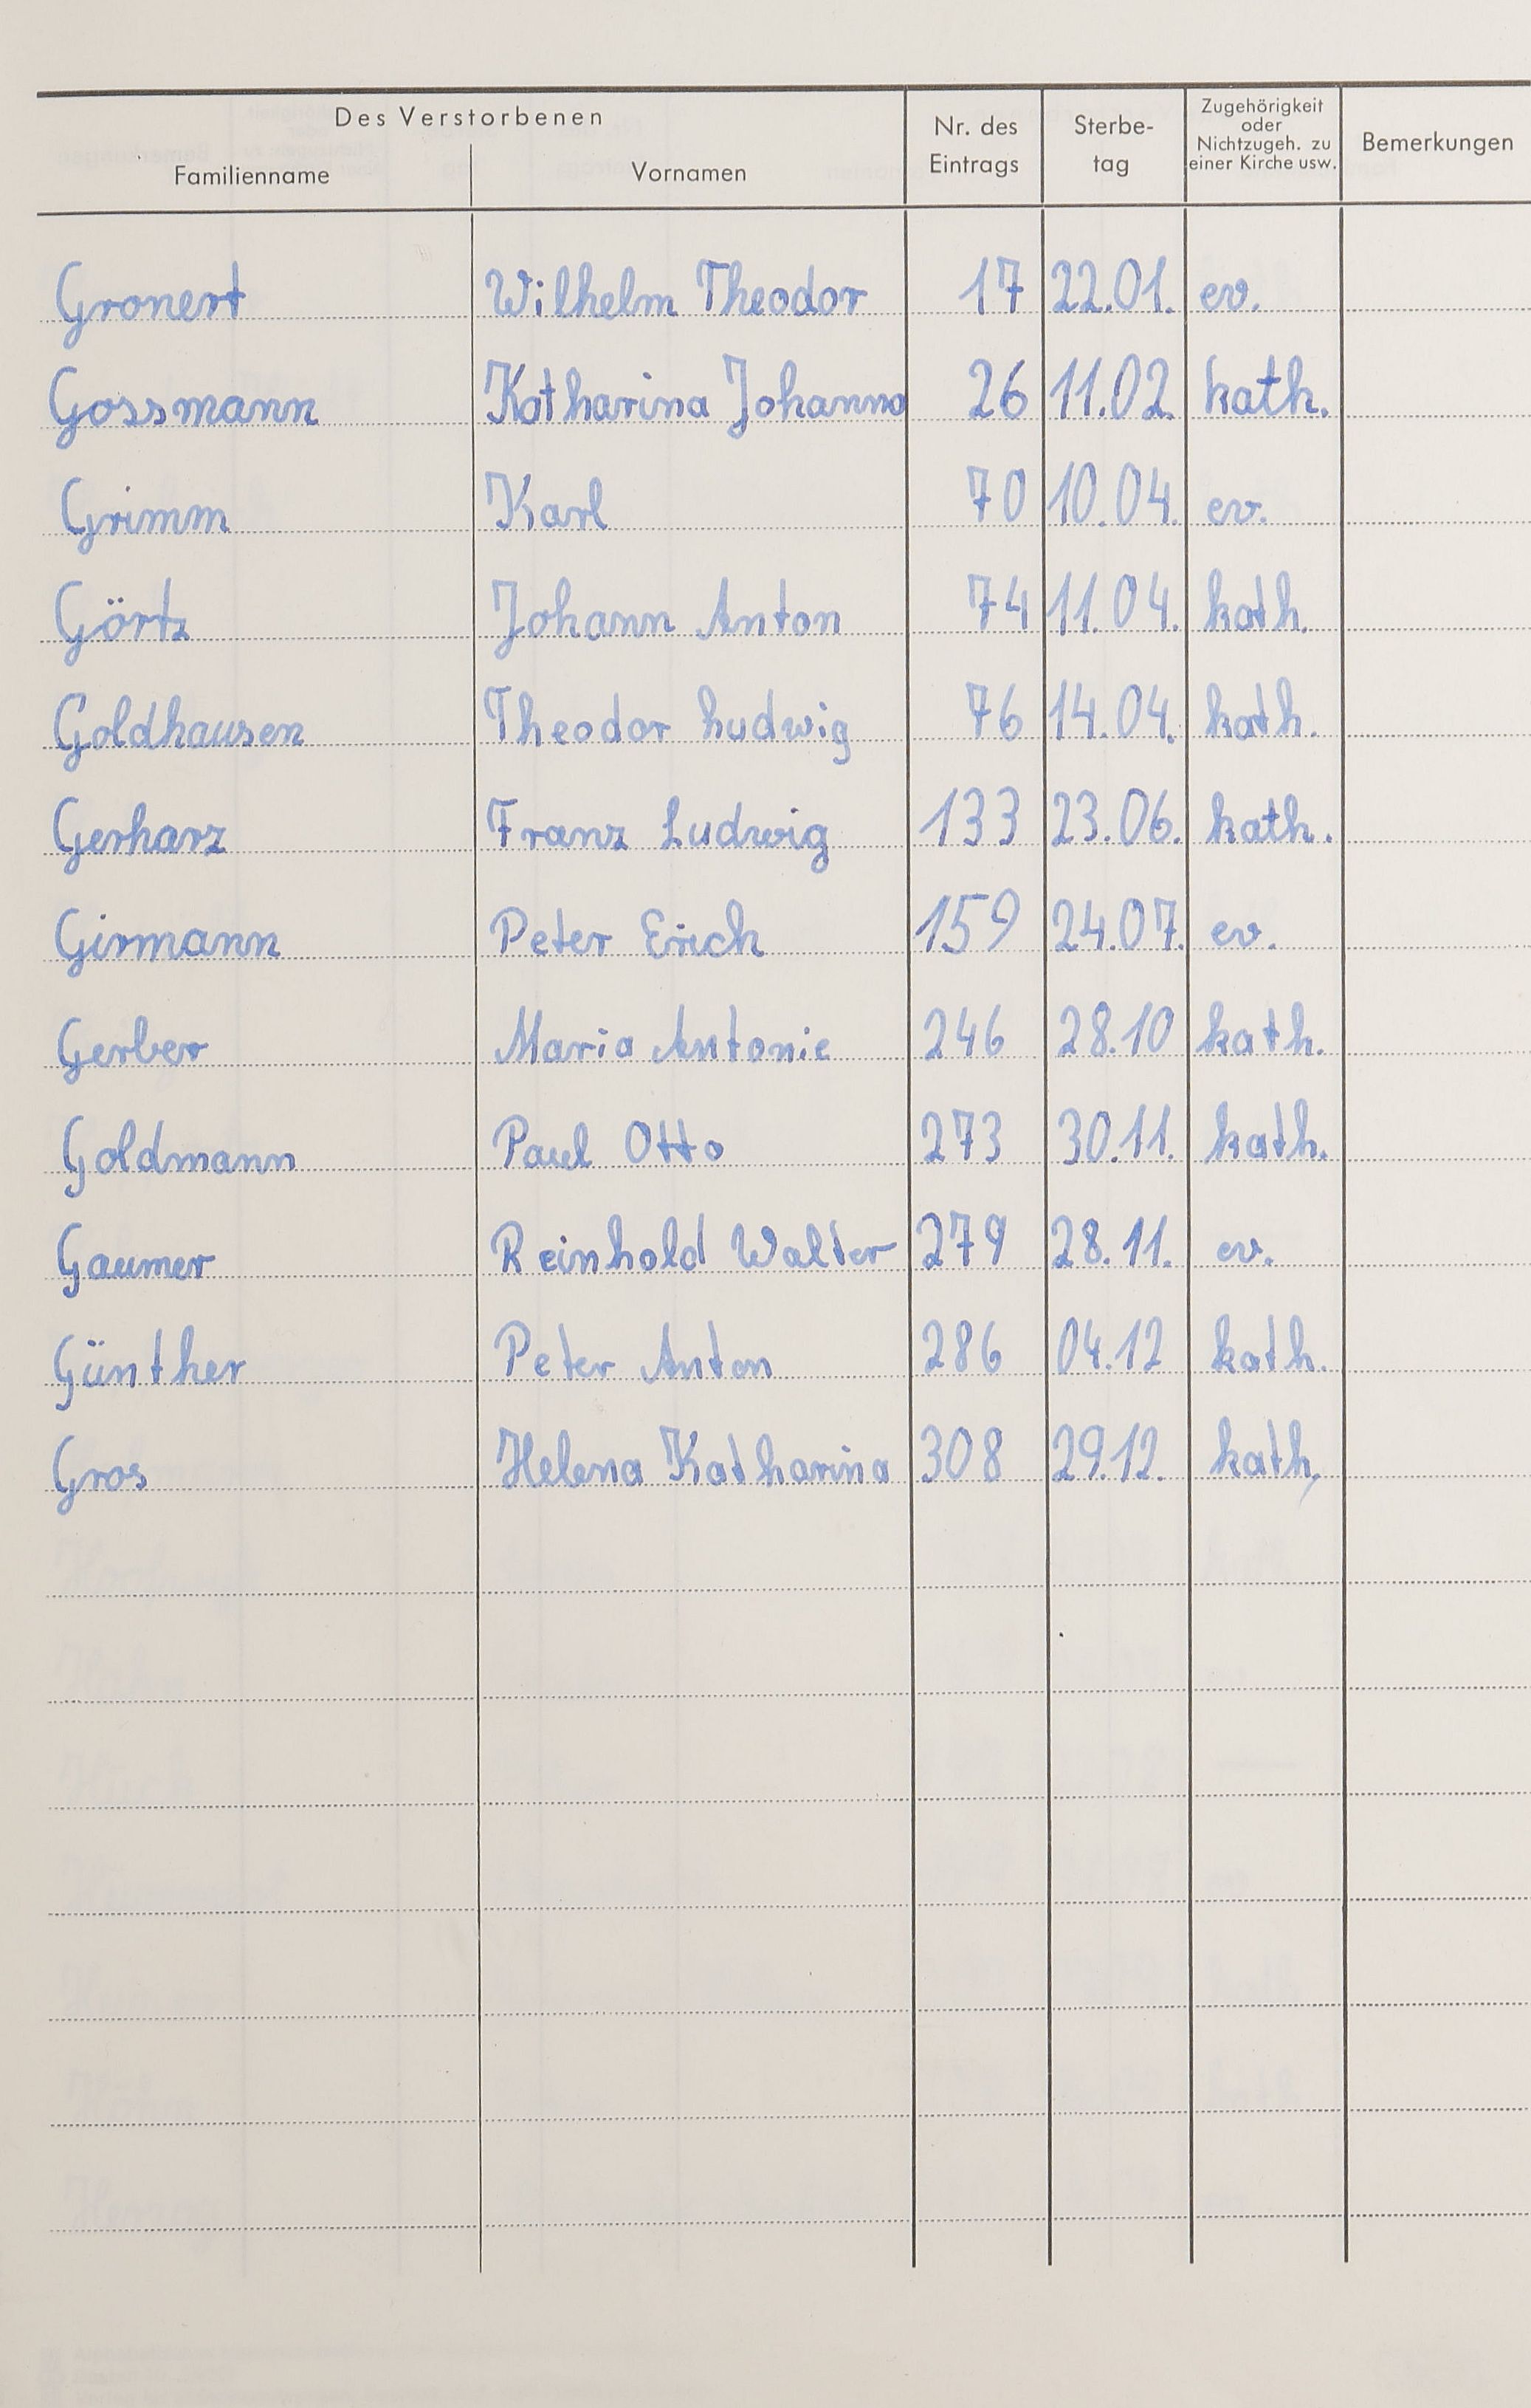 Des Verstorbenen
Familienname Vornamen Nr. des Eintrags Sterbe-tag Zugehörigkeit oder Nichtzugeh. zu einer Kirche usw. Bemerkungen
Gronert Wilhelm Theodor 17 22.01. ev.
Gossmann Katharina Johanna 26 11.02. kath.
Grimm Karl 70 10.04. ev.
Görtz Johann Anton 74 11.04. kath.
Goldhausen Theodor Ludwig 76 14.04. kath.
Gerharz Franz Ludwig 133 23.06. kath.
Girmann Peter Erich 159 24.07. ev.
Gerber Maria Antonie 246 28.10 kath.
Goldmann Paul Otto 273 30.11. kath.
Gaumer Reinhold Walter 279 28.11. ev.
Günther Peter Anton 286 04.12 kath.
Gros Helena Katharina 308 29.12. kath,